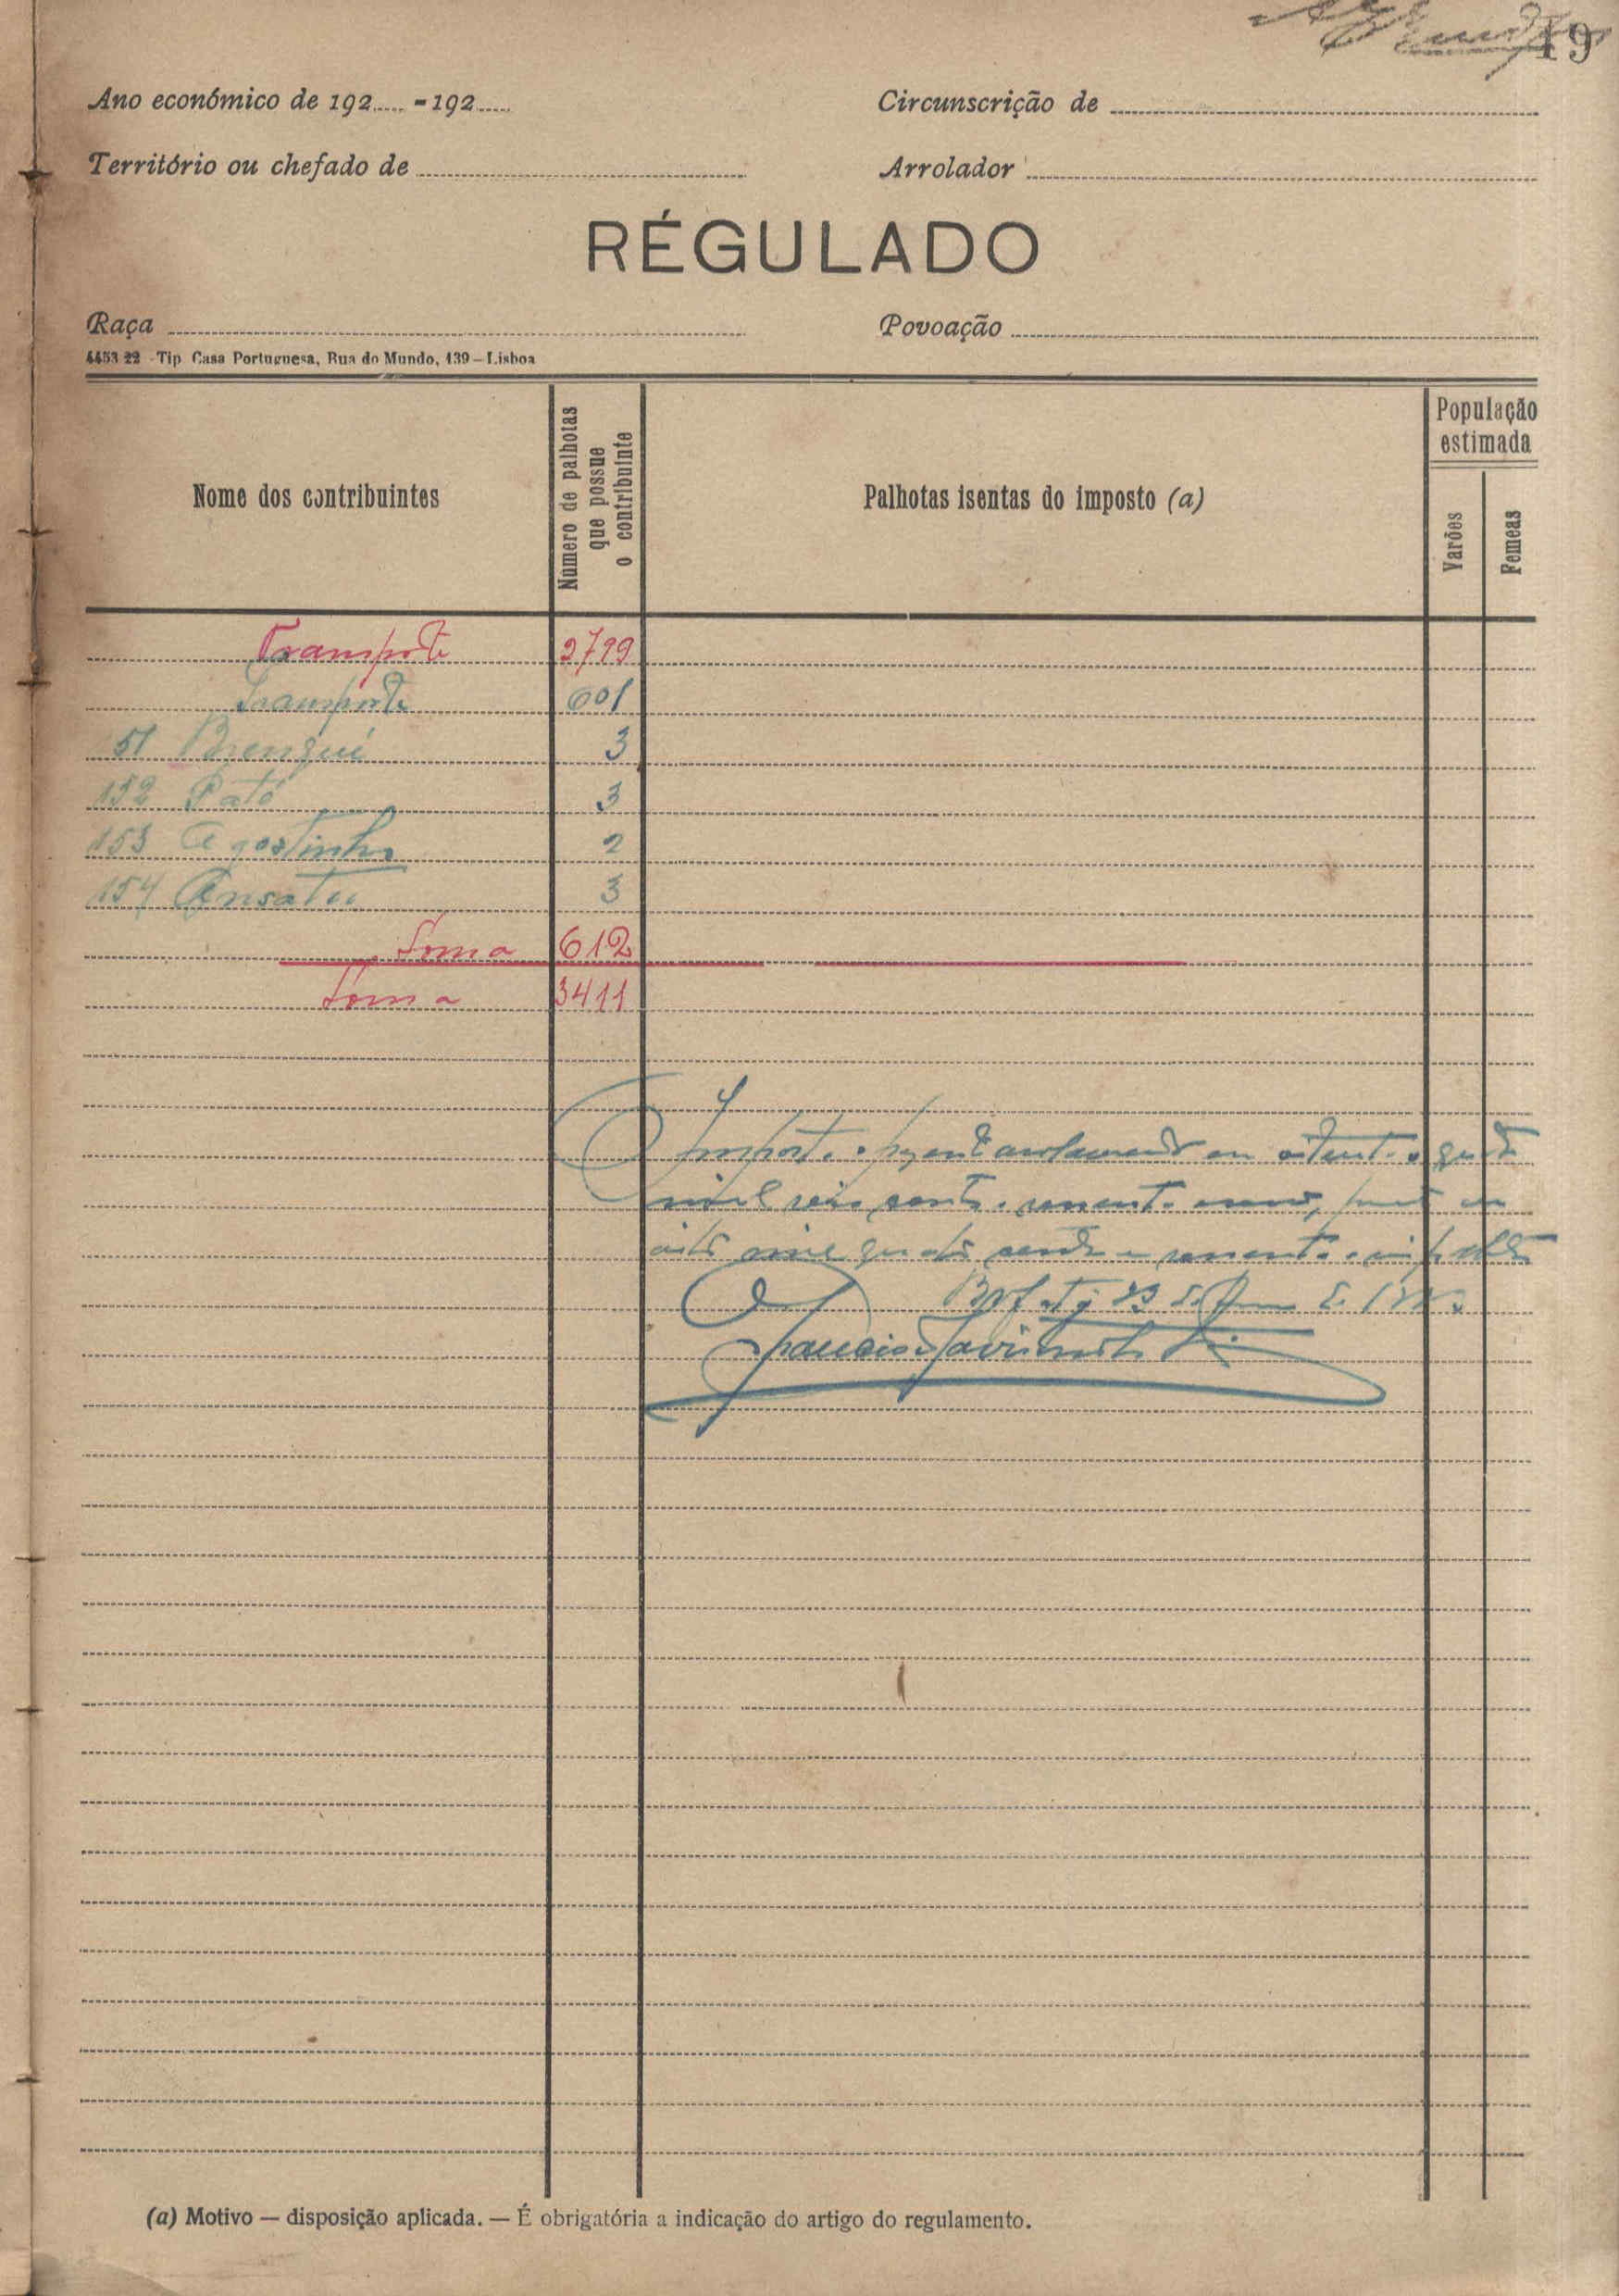 19
Ano económico de 192..... - 192.....
Circunscrição de
Território ou chefado de
Arrolador
RÉGULADO
Raça
Povoação
4453 22 - Tip Casa Portuguesa, Rua do Mundo, 139 – Lisboa
Nome dos contribuintes
Número de palhotas que possue o contribuinte
Palhotas isentas do imposto (a)
População estimada
Varões
Femeas
Transporte 2799
Transporte 601
51 Brengui 3
152 Pató 3
153 Agostinho 2
154 Ansatu 3
Soma 612
Soma 3411
Importa o arrolamento em
mil
oito mil e
23 de de
Francisco Xavier
(a) Motivo — disposição aplicada. — É obrigatória a indicação do artigo do regulamento.